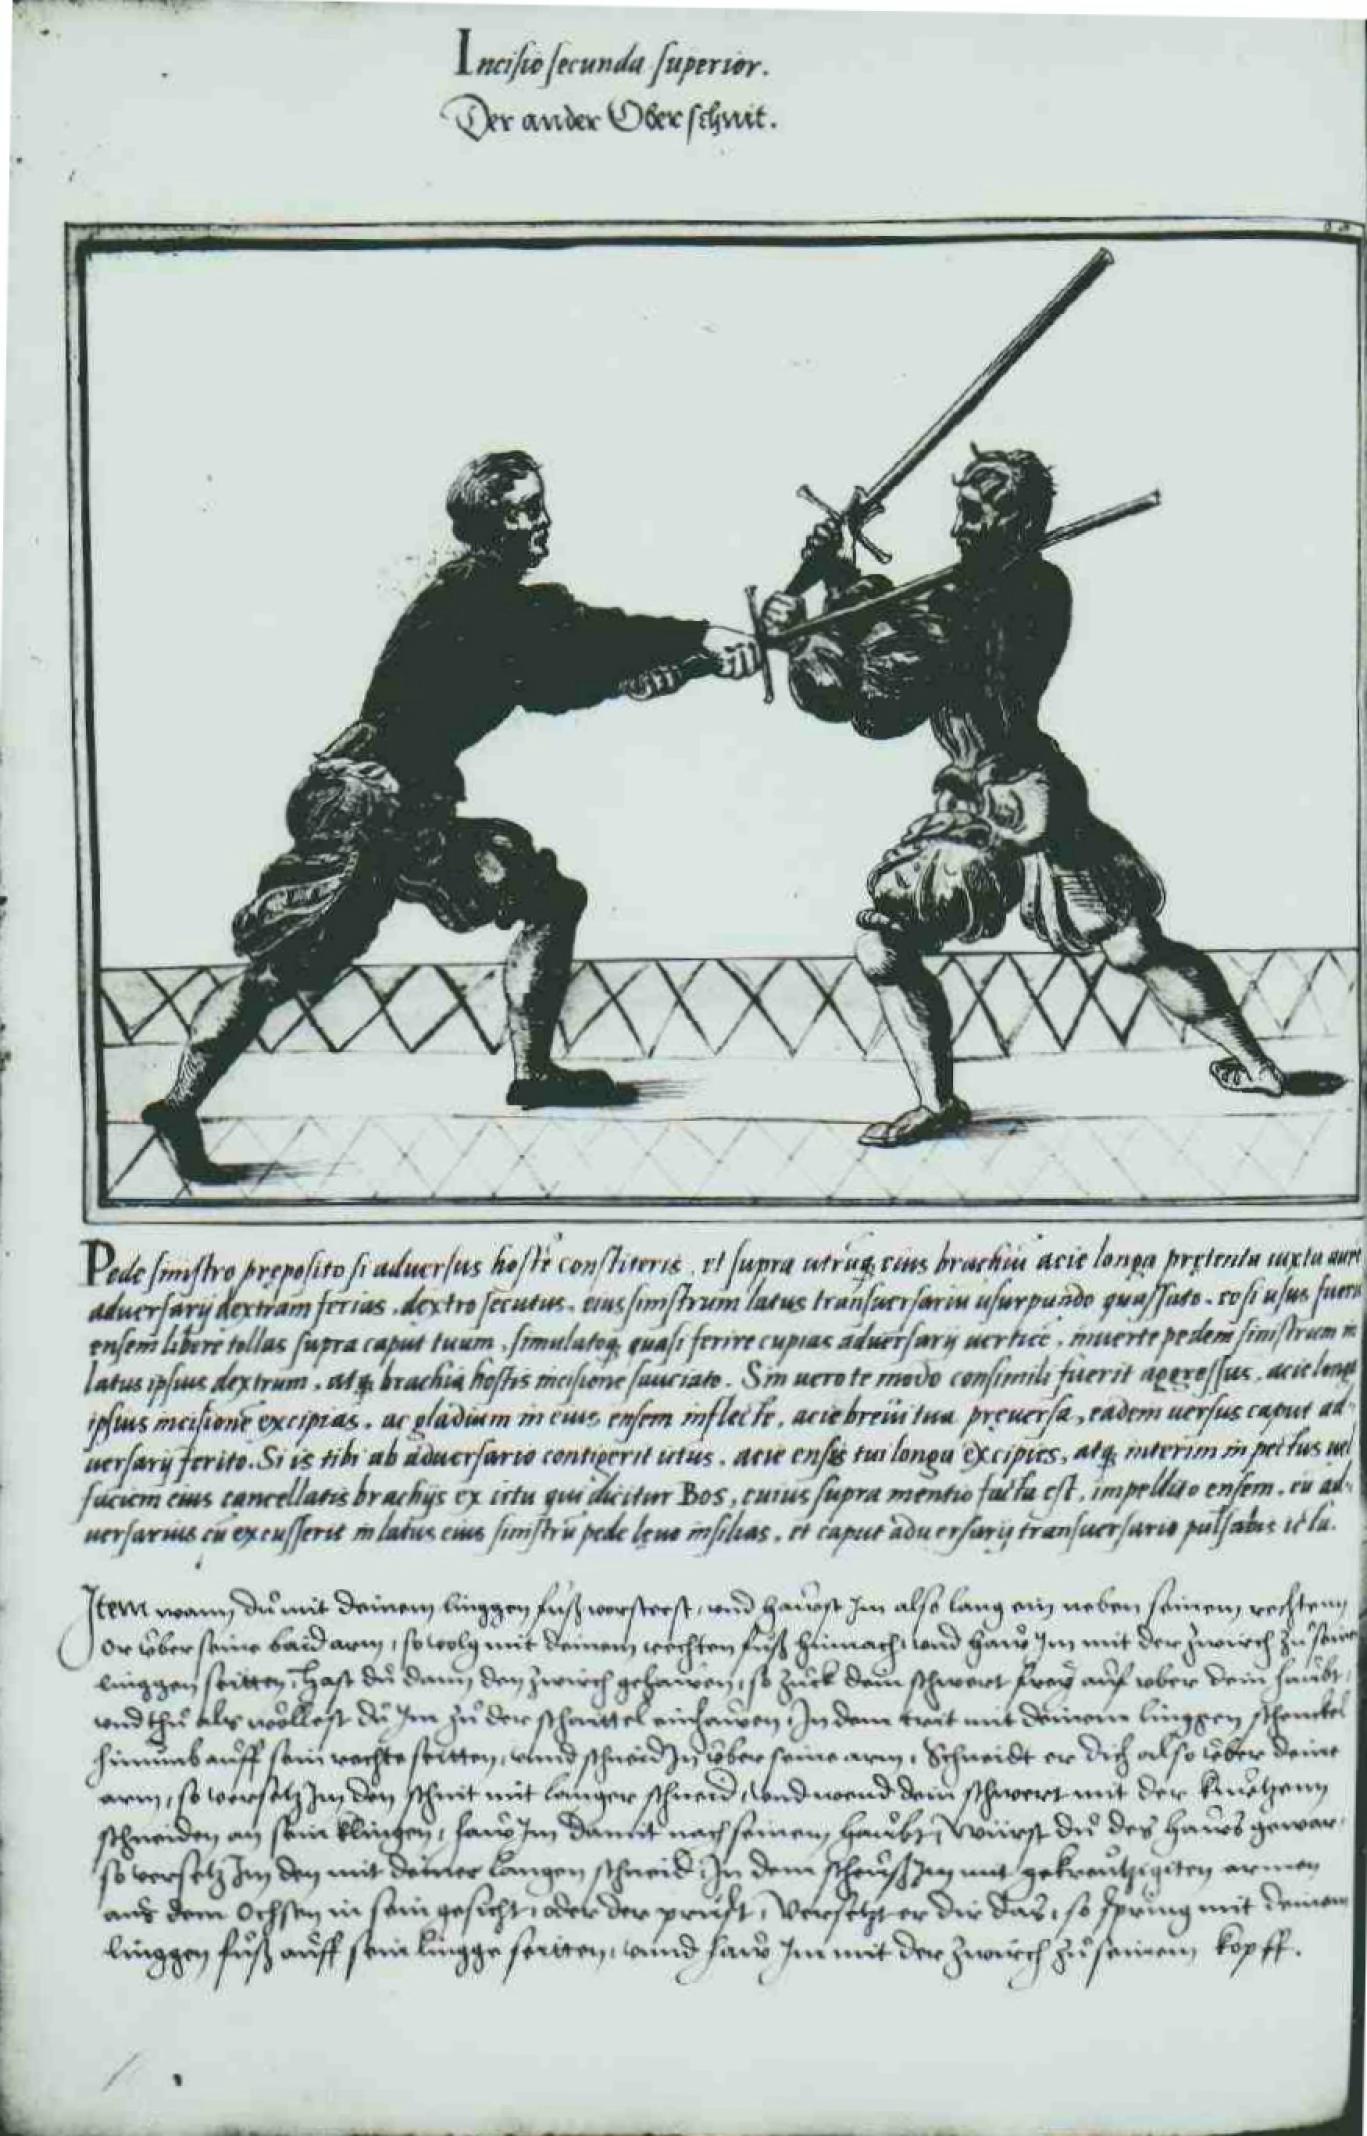 Incisio secunda superior.
Der ander Ober schnit.
Pede sinistro pręposito si adversus hostē constiteris, et supra utrūq; eius brachiū acie longa prętenta iuxta aurē
adversarij dextram ferias, dextro secutus, eius sinistrum latus transversariū usurpando quassato, eo si usus fueris
ensem liberè tollas supra caput tuum, simulatoq; quasi ferire cupias adversarij verticē, inverte pedem sinistrum in
latus ipsius dextrum, atq; brachia hostis incisione sauciato. Sin vero te modo consimili fuerit aggressus, acie longa
ipsius incisionē excipias, ac gladium in eius ensem inflecte, acie brevi tua preversa, eadem versus caput ad-
versarij ferito. Si is tibi ab adversario contigerit ictus, acie ensis tui longa excipies, atq; interim in pectus vel
faciem eius cancellatis brachijs ex ictu qui dicitur Bos, cuius supra mentio facta est, impellito ensem, eū ad-
versarius cū excusserit in latus eius sinistrū pede lęvo insilias, et caput adversarij transversario pulsabis ictu.
Item wann du mit deinem linggen fuß vorsteest, und hawst Im also lang ein neben seinem rechtenn
or über seine baid arm, so volg mit deinem rechten fuß hinnach, und haw Im mit der zwirch zu seiner
linggen seitten, hast du dann den zwirch gehawen, so zuck dein schwert frey auf uber dein haubt,
und thu als wöllest du Im zu der schaittel einhawen, In dem trit mit deinem linggen schenckel
hinumb auff sein rechte seitten, unnd schneid In über seine arm, Schneidt er dich also über deine
arm, so versetz Im den schnit mit langer schneid, und wend dein schwert mit der kurtzenn
schneiden an sein klingen, haw Im damit nach seinem haubt, Würst du des haws gewar,
so versetz Im den mit deiner langen schneid, In dem scheuß Im mit gekreutzigten armen
aus dem Ochsen in sein gesicht, oder der prust, Versetzt er dir das, so spring mit deinem
linggen fuß auff sein lingge seitten, unnd haw Im mit der zwirch zu seinem kopff.